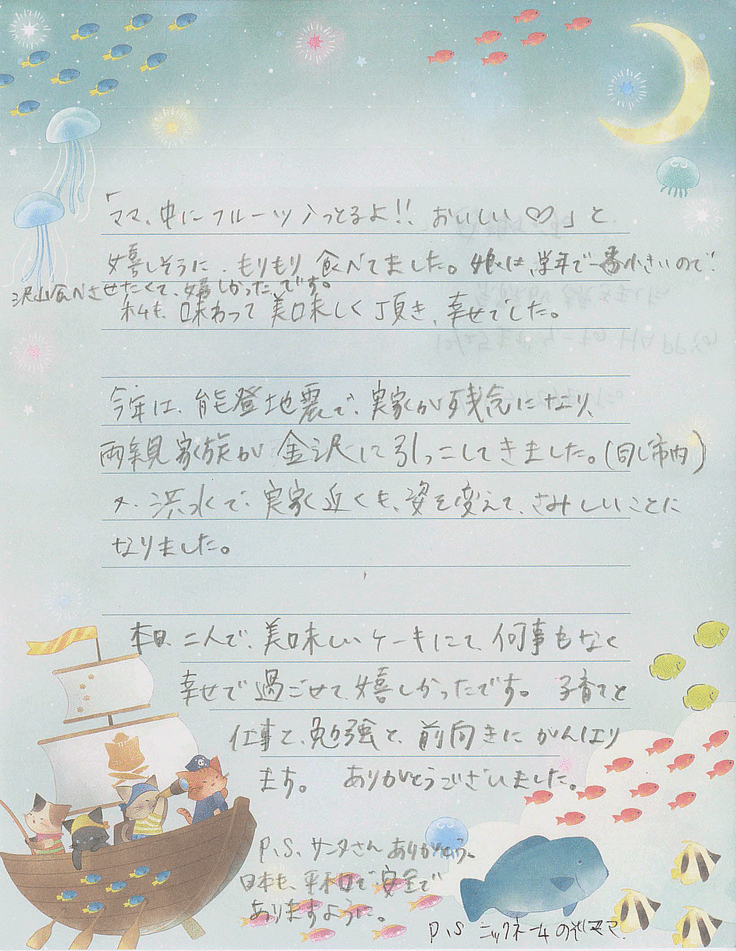 「ママ、中にフルーツ入っとるよ!! おいしい♡」と
嬉しそうに、もりもり食べてました。娘は、学年で一番小さいので
沢山食べさせたくて、嬉しかったです。
私も、味わって美味しく頂き、幸せでした。
今年は、能登地震で、実家が残念になり、
両親家族が金沢に引っこしてきました。(同じ市内)
又、洪水で、実家近くも、姿を変えて、さみしいことに
なりました。
本日、二人で、美味しいケーキにて、何事もなく
幸せで過ごせて、嬉しかったです。子育てと
仕事と、勉強と、前向きにがんばり
ます。 ありがとうございました。
P.S. サンタさんありがとう。
日本も、平和で安全で
ありますように。
P.S ニックネームの ママ